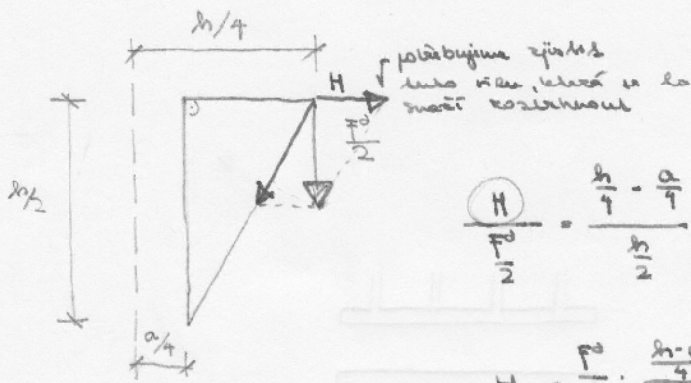 h/4
H
potřebujeme zjistit
tuto sílu, která se
snaží roztrhnout
F^d/2
h/2
H / (F^d/2) = (h/4 - a/4) / (h/2)
a/4